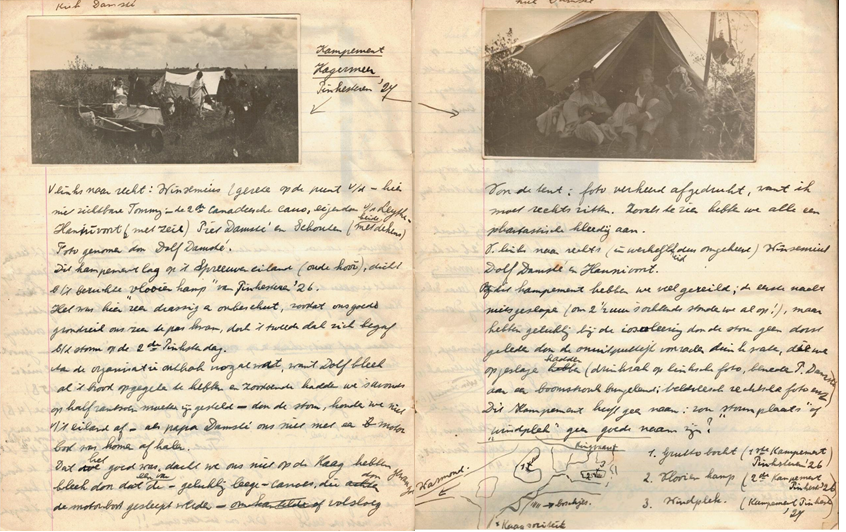 Kampement
Kagermeer
Pinksteren '27
V. links naar recht: Winsemius (gereed op de punt v/d – hier
niet zichtbare Tommy – de 2de Canadeesche cano, eigendom v/d
Hannivoort (met zeil) Piet Damsté en Schouten (beide met dekens)
Foto genomen door Dolf Damsté.
Dit kampement lag op 't Spreeuweneiland (oude kooi), dicht
b/t beruchte vlooien kamp van Pinksteren '26.
Het was hier zeer drassig en onbeschut, zoodat ons goede
grondzeil ons zeer te pas kwam, doch 't tweede dat zich begaf
b/d storm op de 2de Pinksterdag.
want Dolf bleek
al 't brood opgegeten te hebben en zoodoende hadden we 's avonds
op half rantsoen moeten – door de storm, konden we niet
v/t eiland af – als papa Damsté ons niet met een motor
boot was komen afhalen.
Dat het goed was, dacht we ons niet op de Kaag hebben
bleek door dat de – gelukkig leege – canoes, die
de motorboot gesleept werden – volsloeg
Voor de tent: foto verkeerd afgedrukt, want ik
moet rechts zitten. Zooals te zien hebben we alle een
phantastische kleedij aan.
V. links naar rechts (in werkelijkheid omgekeerd) Winsemius
Dolf Damsté en Hannivoort.
Op dit kampement hebben we veel gezeild; de eerste nacht
niet geslapen (om 2 uur 's ochtends stonden we al op!), maar
hebben gelukkig bij de isoleering door de storm geen dorst
geleden door de onuitputtelijk voorraden drink water, dat we
opgeslagen hadden (drinkzak op linksche foto, beneden P. Damsté
aan een boomstronk bungelend; rechtsche foto
Dit Kampement heeft geen naam: zou "stormplaats" of
"windplek" geen goede naam zijn?
Warmond.
1. (1ste Kampement
Pinksteren '26
2. Vlooien kamp (2de Kampement
Pinksteren '26
3. Windplek. (Kampement Pinkst.
'27